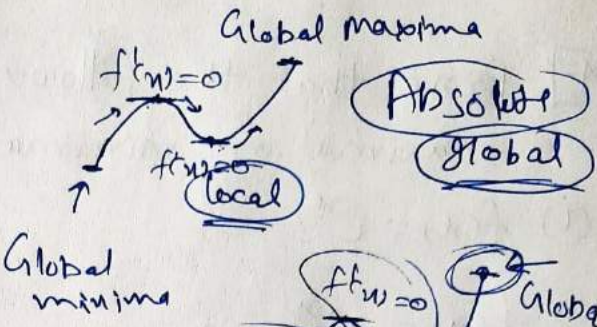 Global Maxima
f'(x)=0
Absolute
global
f'(x)=0
local
Global
minima
f'(x)=0
Globa